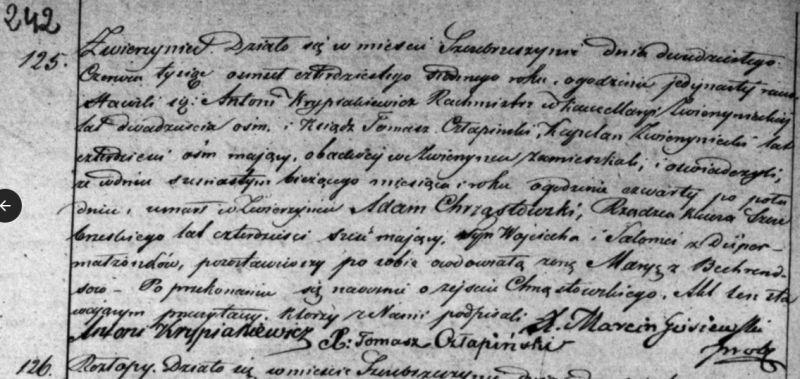 242
125. Zwierzyniec. Działo się w mieście Szczebrzeszynie dnia dwudziestego
Czerwca tysiąc osmset czterdziestego siodmego roku, o godzinie jedynasty rano
Stawili się: Antoni Krypiakiewicz Rachmistrz w Kancellaryi Zwierzynieckiej
lat dwadzieścia ośm, i Ksiądz Tomasz Człapiński, Kapelan Zwierzyniecki lat
czterdzieści ośm mający, obadwaj w Zwierzyncu zamieszkali, i oświadczyli,
że w dniu bieżącego miesiąca i roku o godzinie czwarty po połu
dniu, umarł w Zwierzyncu Adam Chrząstowski, Rządzca Klucza Szcze
brzeskiego lat czterdzieści sześć mający, syn Wojciecha i Salomei z
małżonków, pozostawiwszy po sobie owdowiałą żonę Maryę z
sow – Po przekonaniu się naocznie o zejściu Chrząstowskiego. Akt ten sta
wającym przeczytany, którzy z Nami podpisali X. Marcin
Antoni Krypiakiewicz X. Tomasz Człapiński
126. Rozłopy. Działo się w mieście Szczebrzeszynie